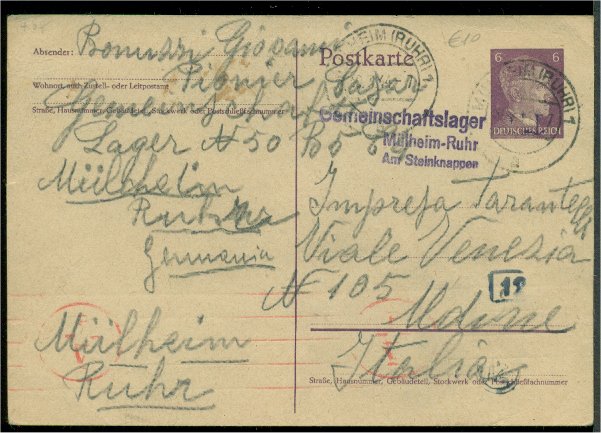 Absender: Bonussi Giovanni
Wohnort, auch Zustell- oder Leitpostamt
Pionier Lager
Straße, Hausnummer, Gebäudeteil, Stockwerk oder Postschließfachnummer
Gemeinschafts
Lager N 50
Mülheim
Ruhr
Germania
Mülheim
Ruhr
€10
Postkarte
MÜLHEIM (RUHR) 1
6 6
DEUTSCHES REICH
MÜLHEIM (RUHR) 1
Gemeinschaftslager
Mülheim-Ruhr
Am Steinknappen
Impresa Tarantegg
Viale Venezia
N 105
12
Udine
Italia
Straße, Hausnummer, Gebäudeteil, Stockwerk oder Postschließfachnummer